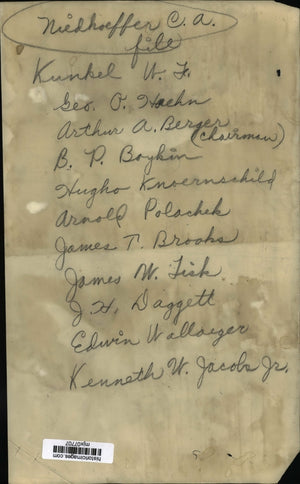 Niedhoeffer C. A.
file
Kunkel W. F.
Geo. P. Haehn
Arthur A. Berger
(chairman)
B. P. Boykin
Hugho Knoernschild
Arnold Polachek
James T. Brooks
James W. Fisk
J. H. Daggett
Edwin Wallaeger
Kenneth W. Jacobs Jr.
historicimages.com